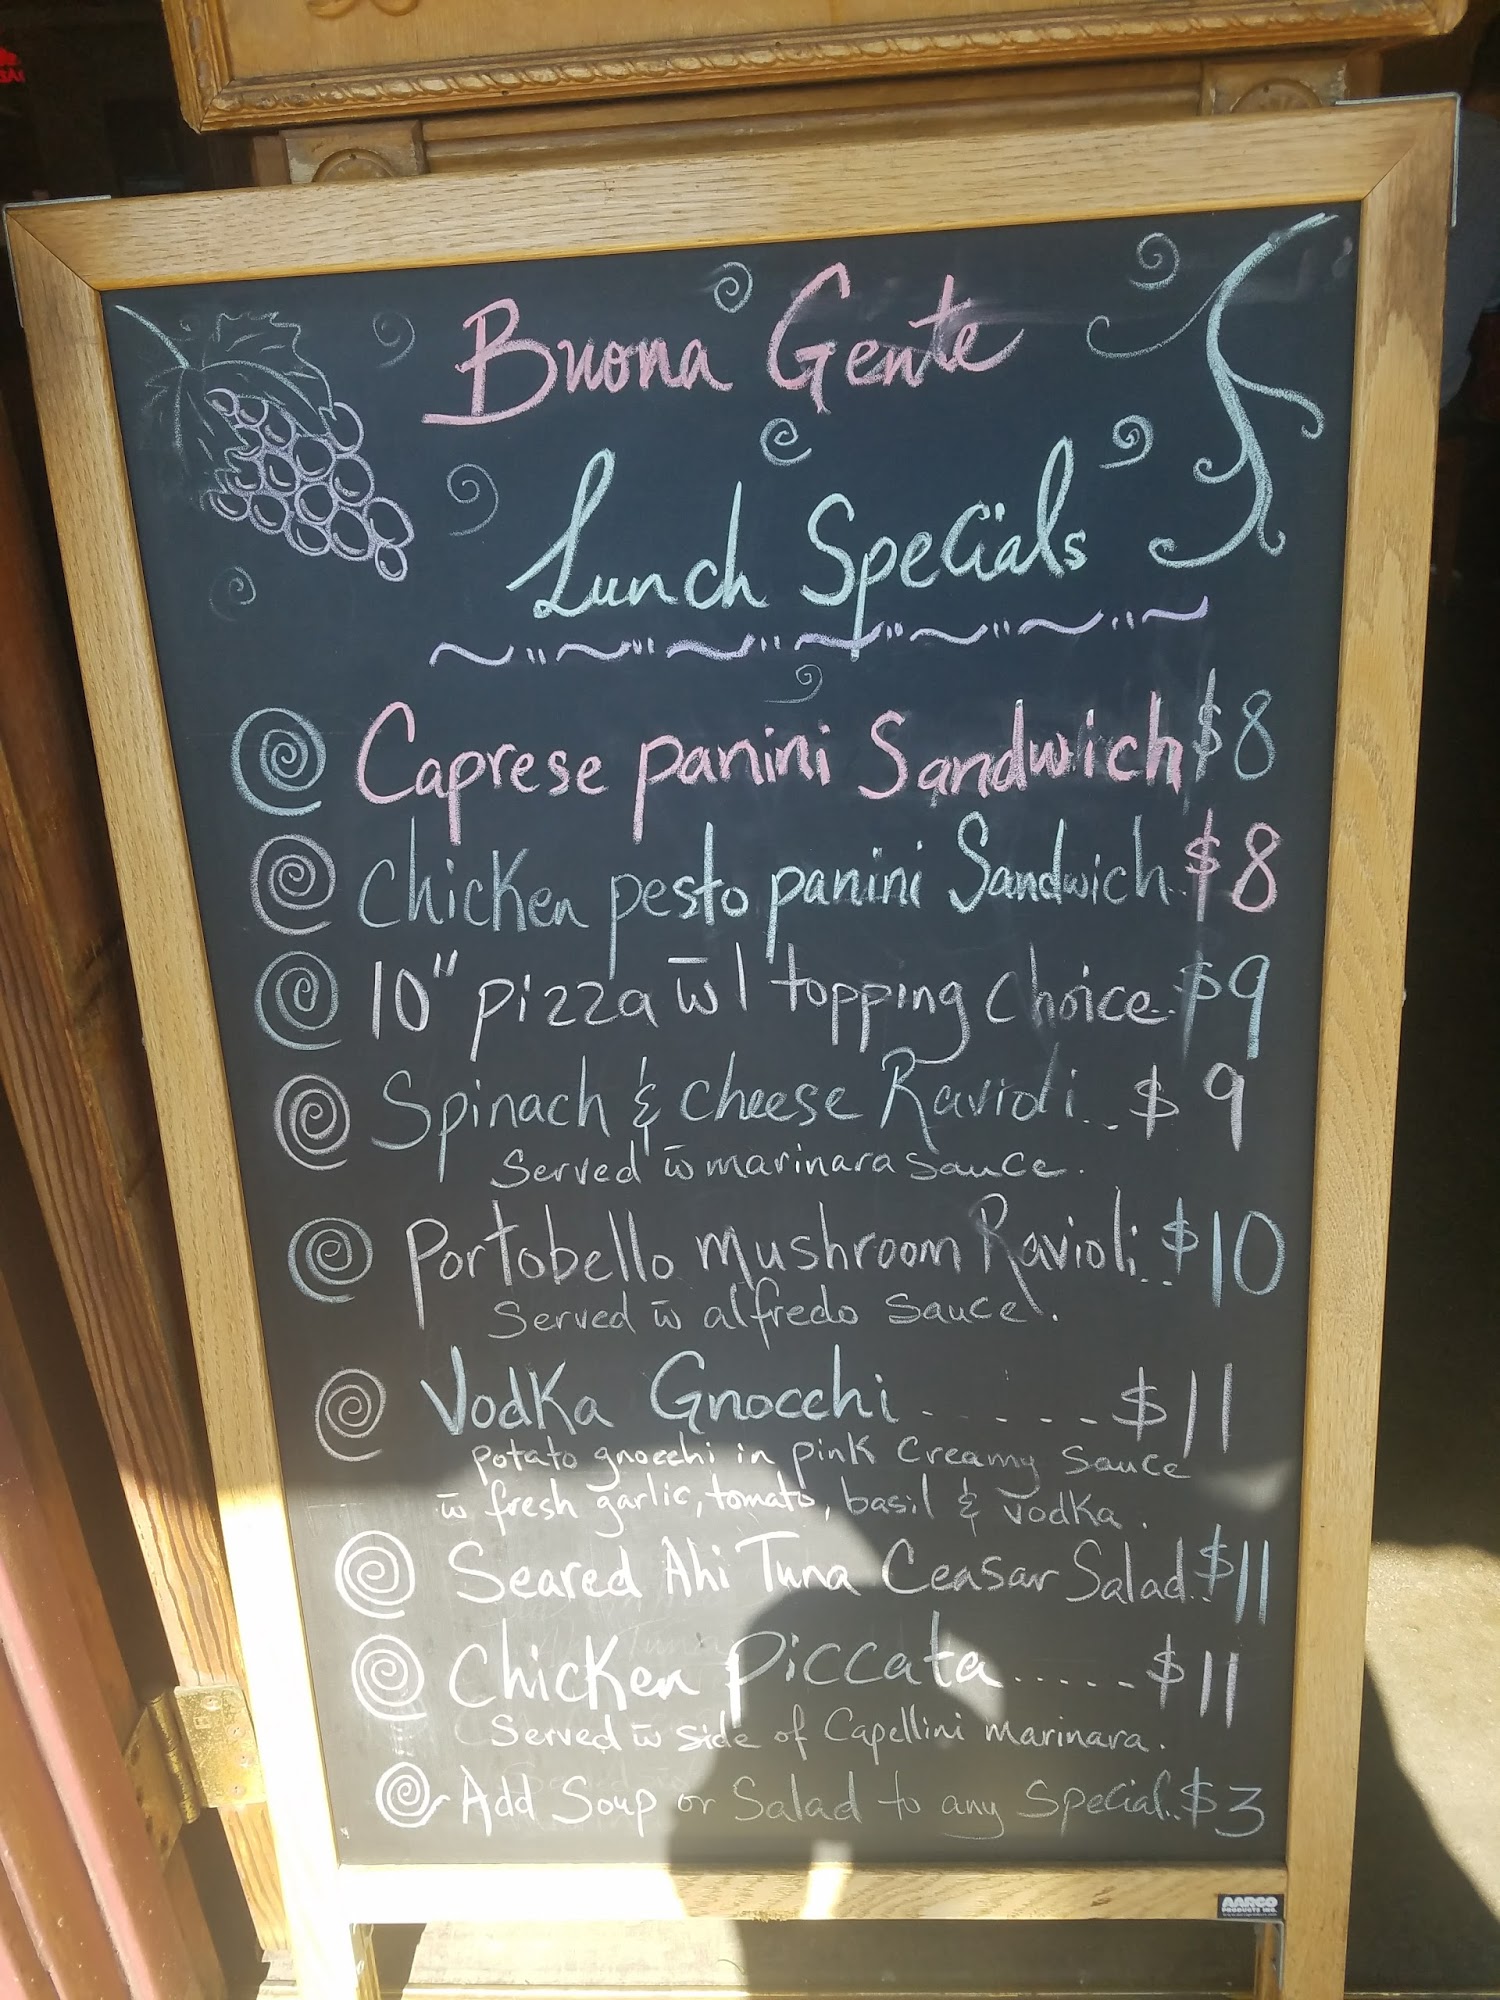 Buona Gente
Lunch Specials
Caprese panini Sandwich $8
Chicken pesto panini Sandwich.. $8
10" pizza w̄ 1 topping choice... $9
Spinach & cheese Ravioli... $9
Served w̄ marinara sauce.
Portobello Mushroom Ravioli... $10
Served w̄ alfredo sauce.
Vodka Gnocchi......$11
potato gnocchi in pink creamy sauce
w̄ fresh garlic, tomato, basil & vodka.
Seared Ahi Tuna Ceasar Salad..$11
Chicken Piccata......$11
Served w̄ side of Capellini marinara.
Add Soup or Salad to any Special..$3
AARCO
PRODUCTS INC.